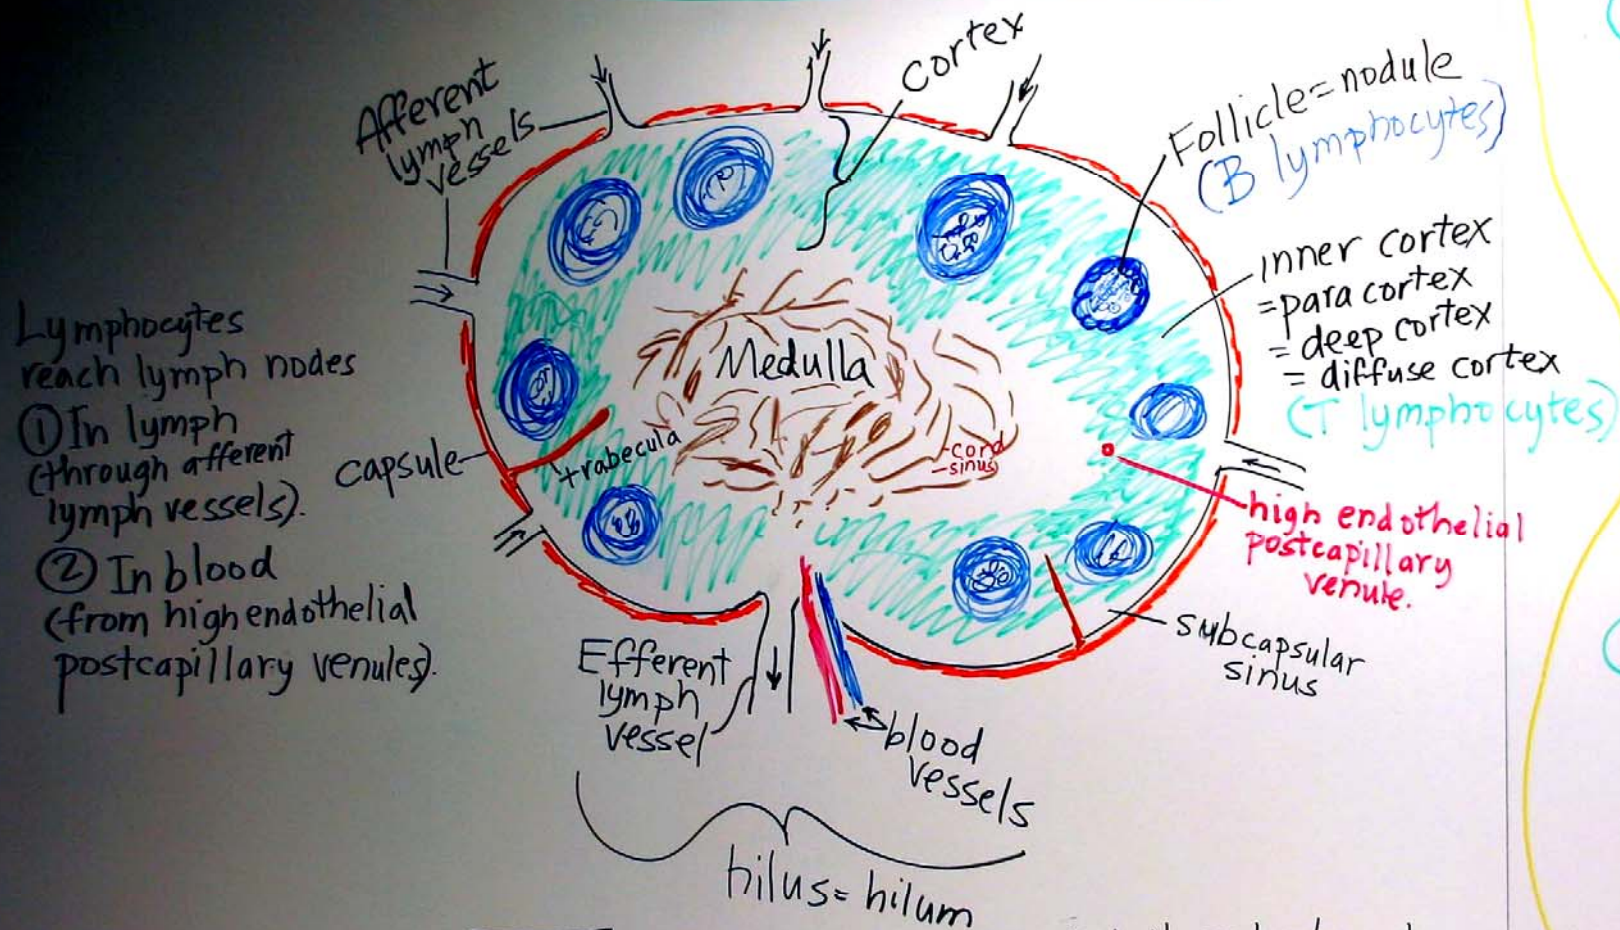 Afferent
lymph
vessels
cortex
Follicle = nodule
(B lymphocytes)
inner cortex
= para cortex
= deep cortex
= diffuse cortex
(T lymphocytes)
Lymphocytes
reach lymph nodes
① In lymph
(through afferent
lymph vessels).
② In blood
(from high endothelial
postcapillary venules).
Medulla
capsule
trabecula
cord
sinus
high endothelial
postcapillary
venule.
subcapsular
sinus
Efferent
lymph
vessel
blood
vessels
hilus = hilum